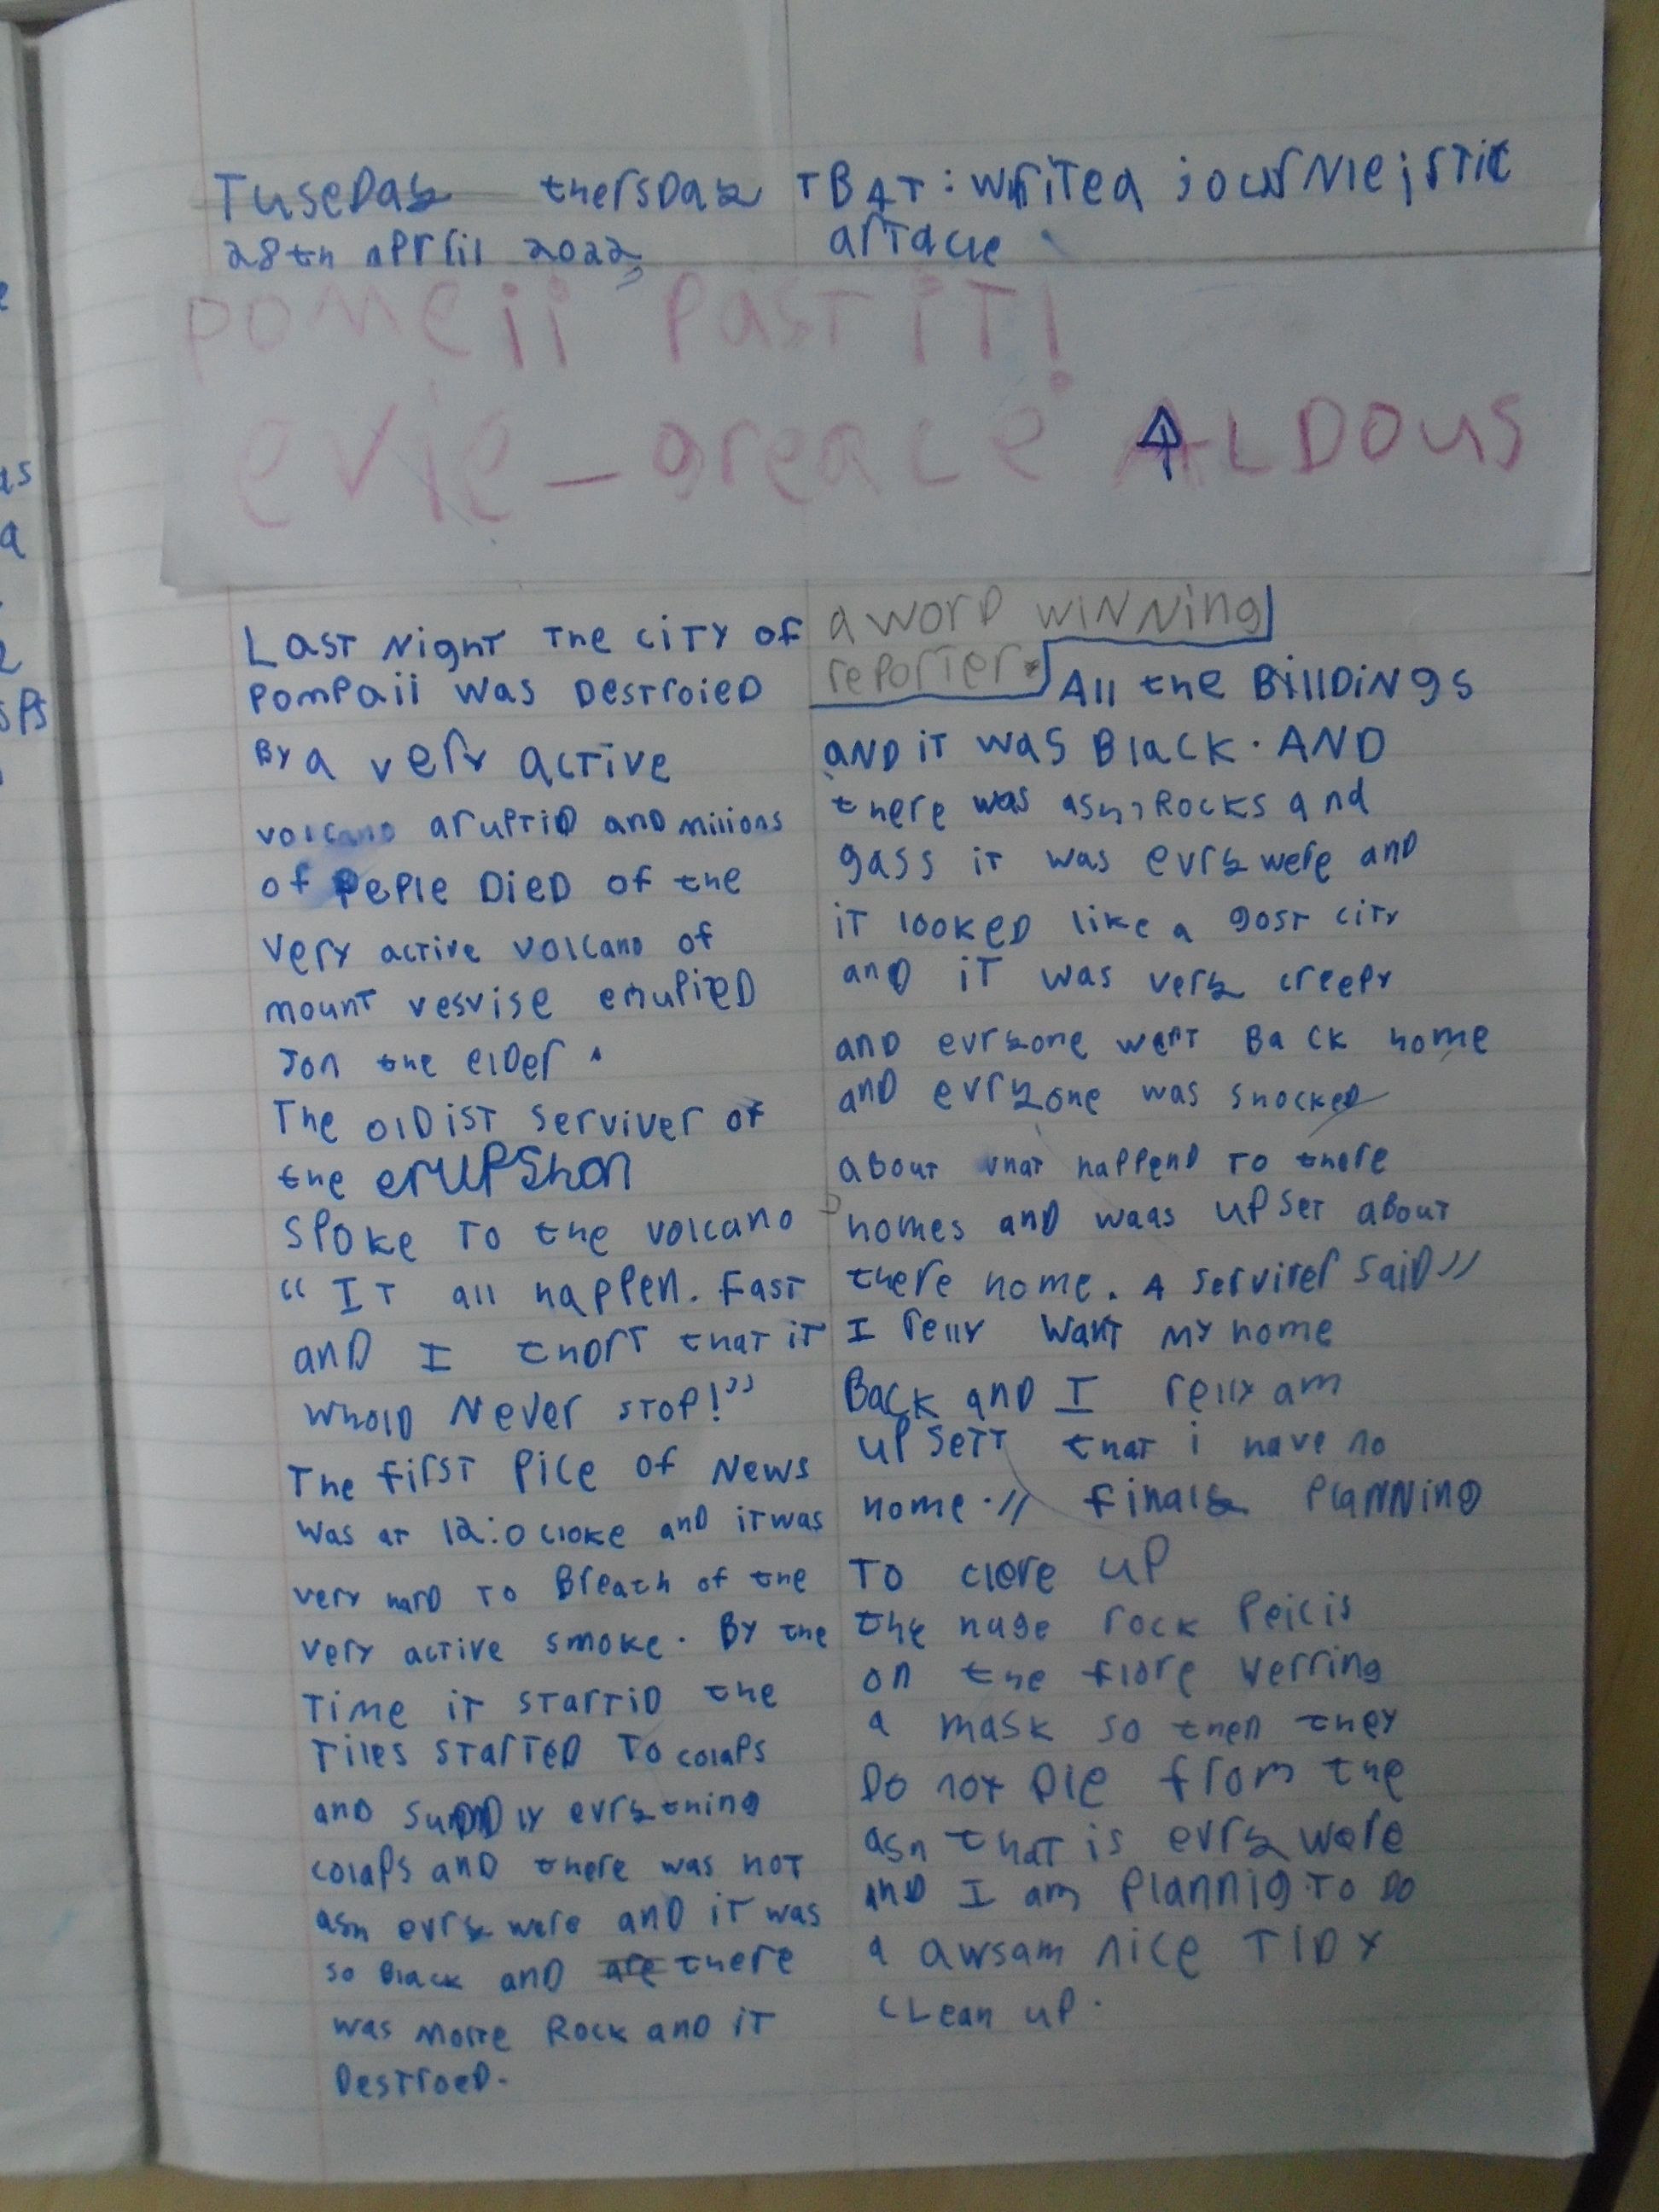 Tuseday thersday TBAT: writea journleistic
28th Aprril 2022, artacle
pomeii past it!
evie-greace ALDOUS
Last Night The city of
Pompaii was Destroied
By a very active
volcano aruptid and milions
of Peple Died of the
very active volcano of
mount vesvise
Jon the elder.
The oldist serviver of
the erupshon
spoke to the volcano
"It all happen. Fast
and I thort that it
whold Never stop!"
The first Pice of News
was at 12:0cloke and itwas
very hard to Breath of the
very active smoke. By the
Time it startid the
Tiles started To colaps
and sunddly evrything
colaps and there was hot
ash evry were and it was
so Black and are there
was morre Rock and it
Destroed.
a word winning
reporter.
All the Billdings
and it was Black. AND
there was ash, Rocks and
gass it was evry were and
it looked like a gost city
and it was very creepy
and evryone went Back home
and evryone was shocked
about what happend to there
homes and waas upset about
there home. A serviver said"
I relly want my home
Back and I relly am
upsett that i have no
home." finaly Planning
To clere up
the huge rock Peicis
on the flore werring
a mask so then they
Do not Die from the
ash that is evry were
and I am plannig To Do
a awsam nice TIDY
CLean up.